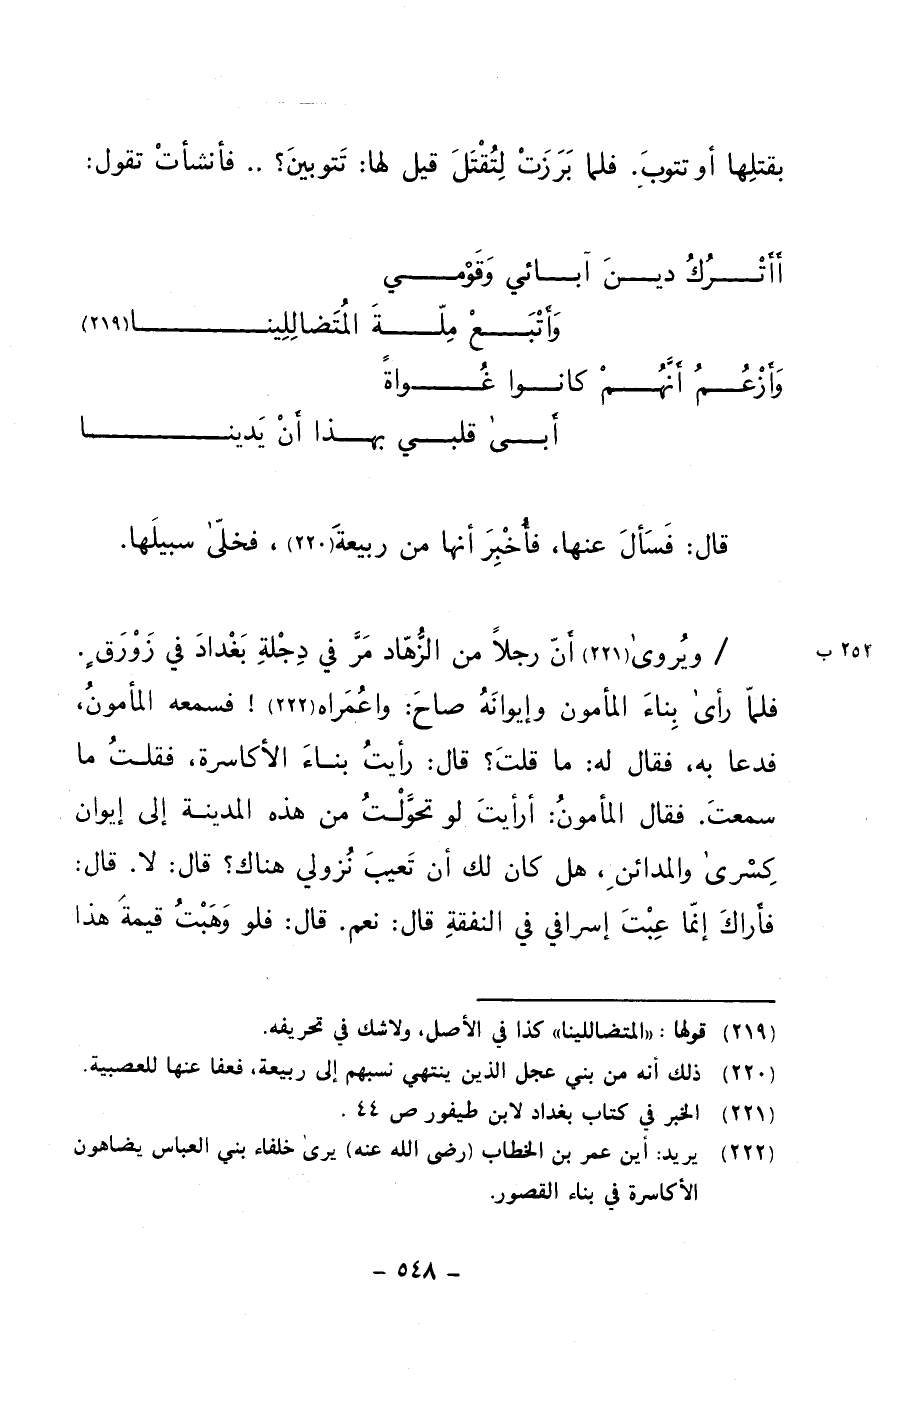 بقتلِها أو تتوبَ. فلما بَرَزَتْ لِتُقْتَلَ قيل لها: تَتوبينَ؟ .. فأنشأتْ تقول:
أَأَتْـرُكُ ديـنَ آبـائي وَقَوْمـي
وَأَتْبَـعْ مِلّـةَ المُتَضالِلِينـا(٢١٩)
وَأَزْعُـمُ أَنَّهُـمْ كانـوا غُـواةً
أبـىٰ قلبـي بهـذا أنْ يَدينـا
قال: فَسَألَ عنها، فأُخْبِرَ أنها من ربيعةَ(٢٢٠) ، فخلّىٰ سبيلَها.
٢٥٢ ب / ويُروىٰ(٢٢١) أنّ رجلاً من الزُّهّاد مَرَّ في دِجْلةِ بَغْدادَ في زَوْرَقٍ.
فلمّا رأىٰ بِناءَ المأمون وإيوانَهُ صاحَ: واعُمَراه(٢٢٢) ! فسمعه المأمونُ،
فدعا به، فقال له: ما قلتَ؟ قال: رأيتُ بنـاءَ الأكاسرة، فقلـتُ ما
سمعتَ. فقال المأمونُ: أرأيتَ لو تحوَّلْـتُ من هذه المدينـة إلى إيوان
كِسْرىٰ والمدائنِ، هل كان لك أن تَعيبَ نُزولي هناك؟ قال: لا. قال:
فأراكَ إنّما عِبْتَ إسرافي في النفقةِ قال: نعم. قال: فلو وَهَبْتُ قيمةَ هذا
(٢١٩) قولها : «المتضاللينا» كذا في الأصل، ولاشك في تحريفه.
(٢٢٠) ذلك أنه من بني عجل الذين ينتهي نسبهم إلى ربيعة، فعفا عنها للعصبية.
(٢٢١) الخبر في كتاب بغداد لابن طيفور ص ٤٤ .
(٢٢٢) يريد: أين عمر بن الخطاب (رضى الله عنه) يرىٰ خلفاء بني العباس يضاهون
الأكاسرة في بناء القصور.
- ٥٤٨ -